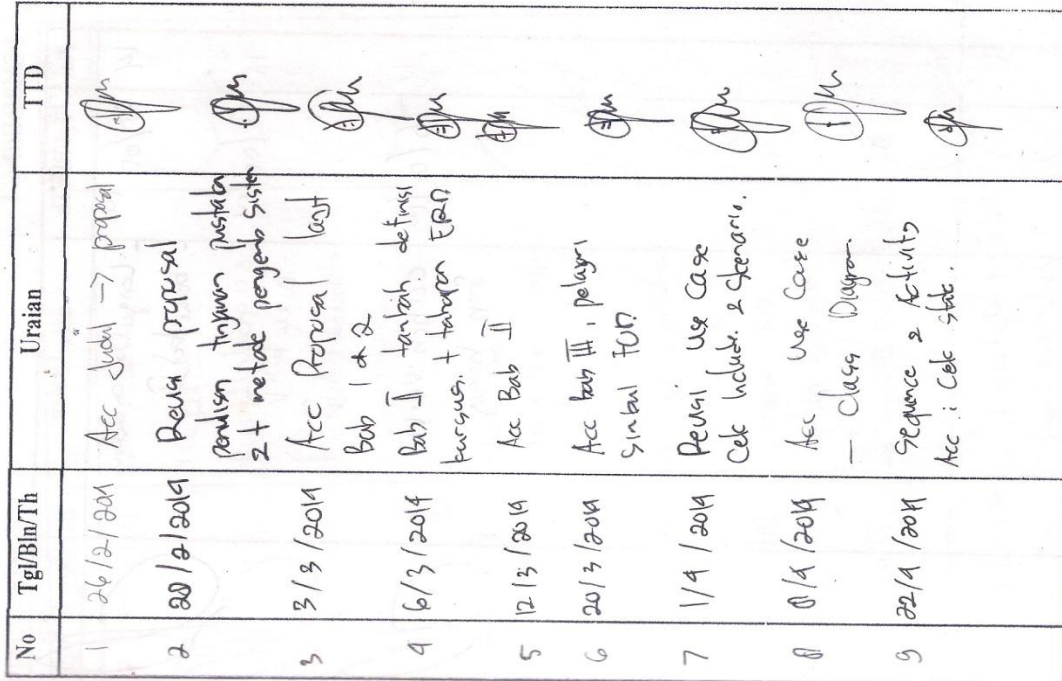 No Tgl/Bln/Th Uraian TTD
1 26/2/2014 Acc Judul → proposal
2 28/2/2014 Revisi proposal
penulisan tinjauan pustaka
2 + metode pengemb sistem
3 3/3/2014 Acc Proposal lanjt
Bab 1 d 2
4 6/3/2014 Bab II tambah definisi
kursus. + tahapan ERD
5 12/3/2014 Acc Bab II
6 20/3/2014 Acc bab III, pelajari
simbul FOD
7 1/4/2014 Revisi Use Case
Cek include. & Scenario.
8 8/4/2014 Acc Use Case
— Class Diagram.
9 22/4/2014 Sequence & Activity
Acc : Cek State.